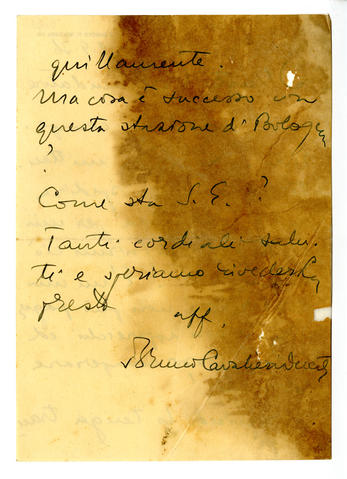 quillamente.
Ma cosa è successo con
questa stazione di Bologna
?
Come sta S. E. ?
Tanti cordiali salu-
ti e speriamo rivederla
presto
aff.
Bruno Cavalieri Ducati